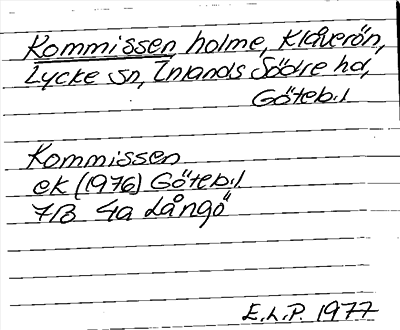 Kommissen holme, Klåverön,
Lycke sn, Inlands Södre hd,
Göteb.l
Kommissen
ek (1976) Göteb.l
7B 4a Långö
E.L.P. 1977